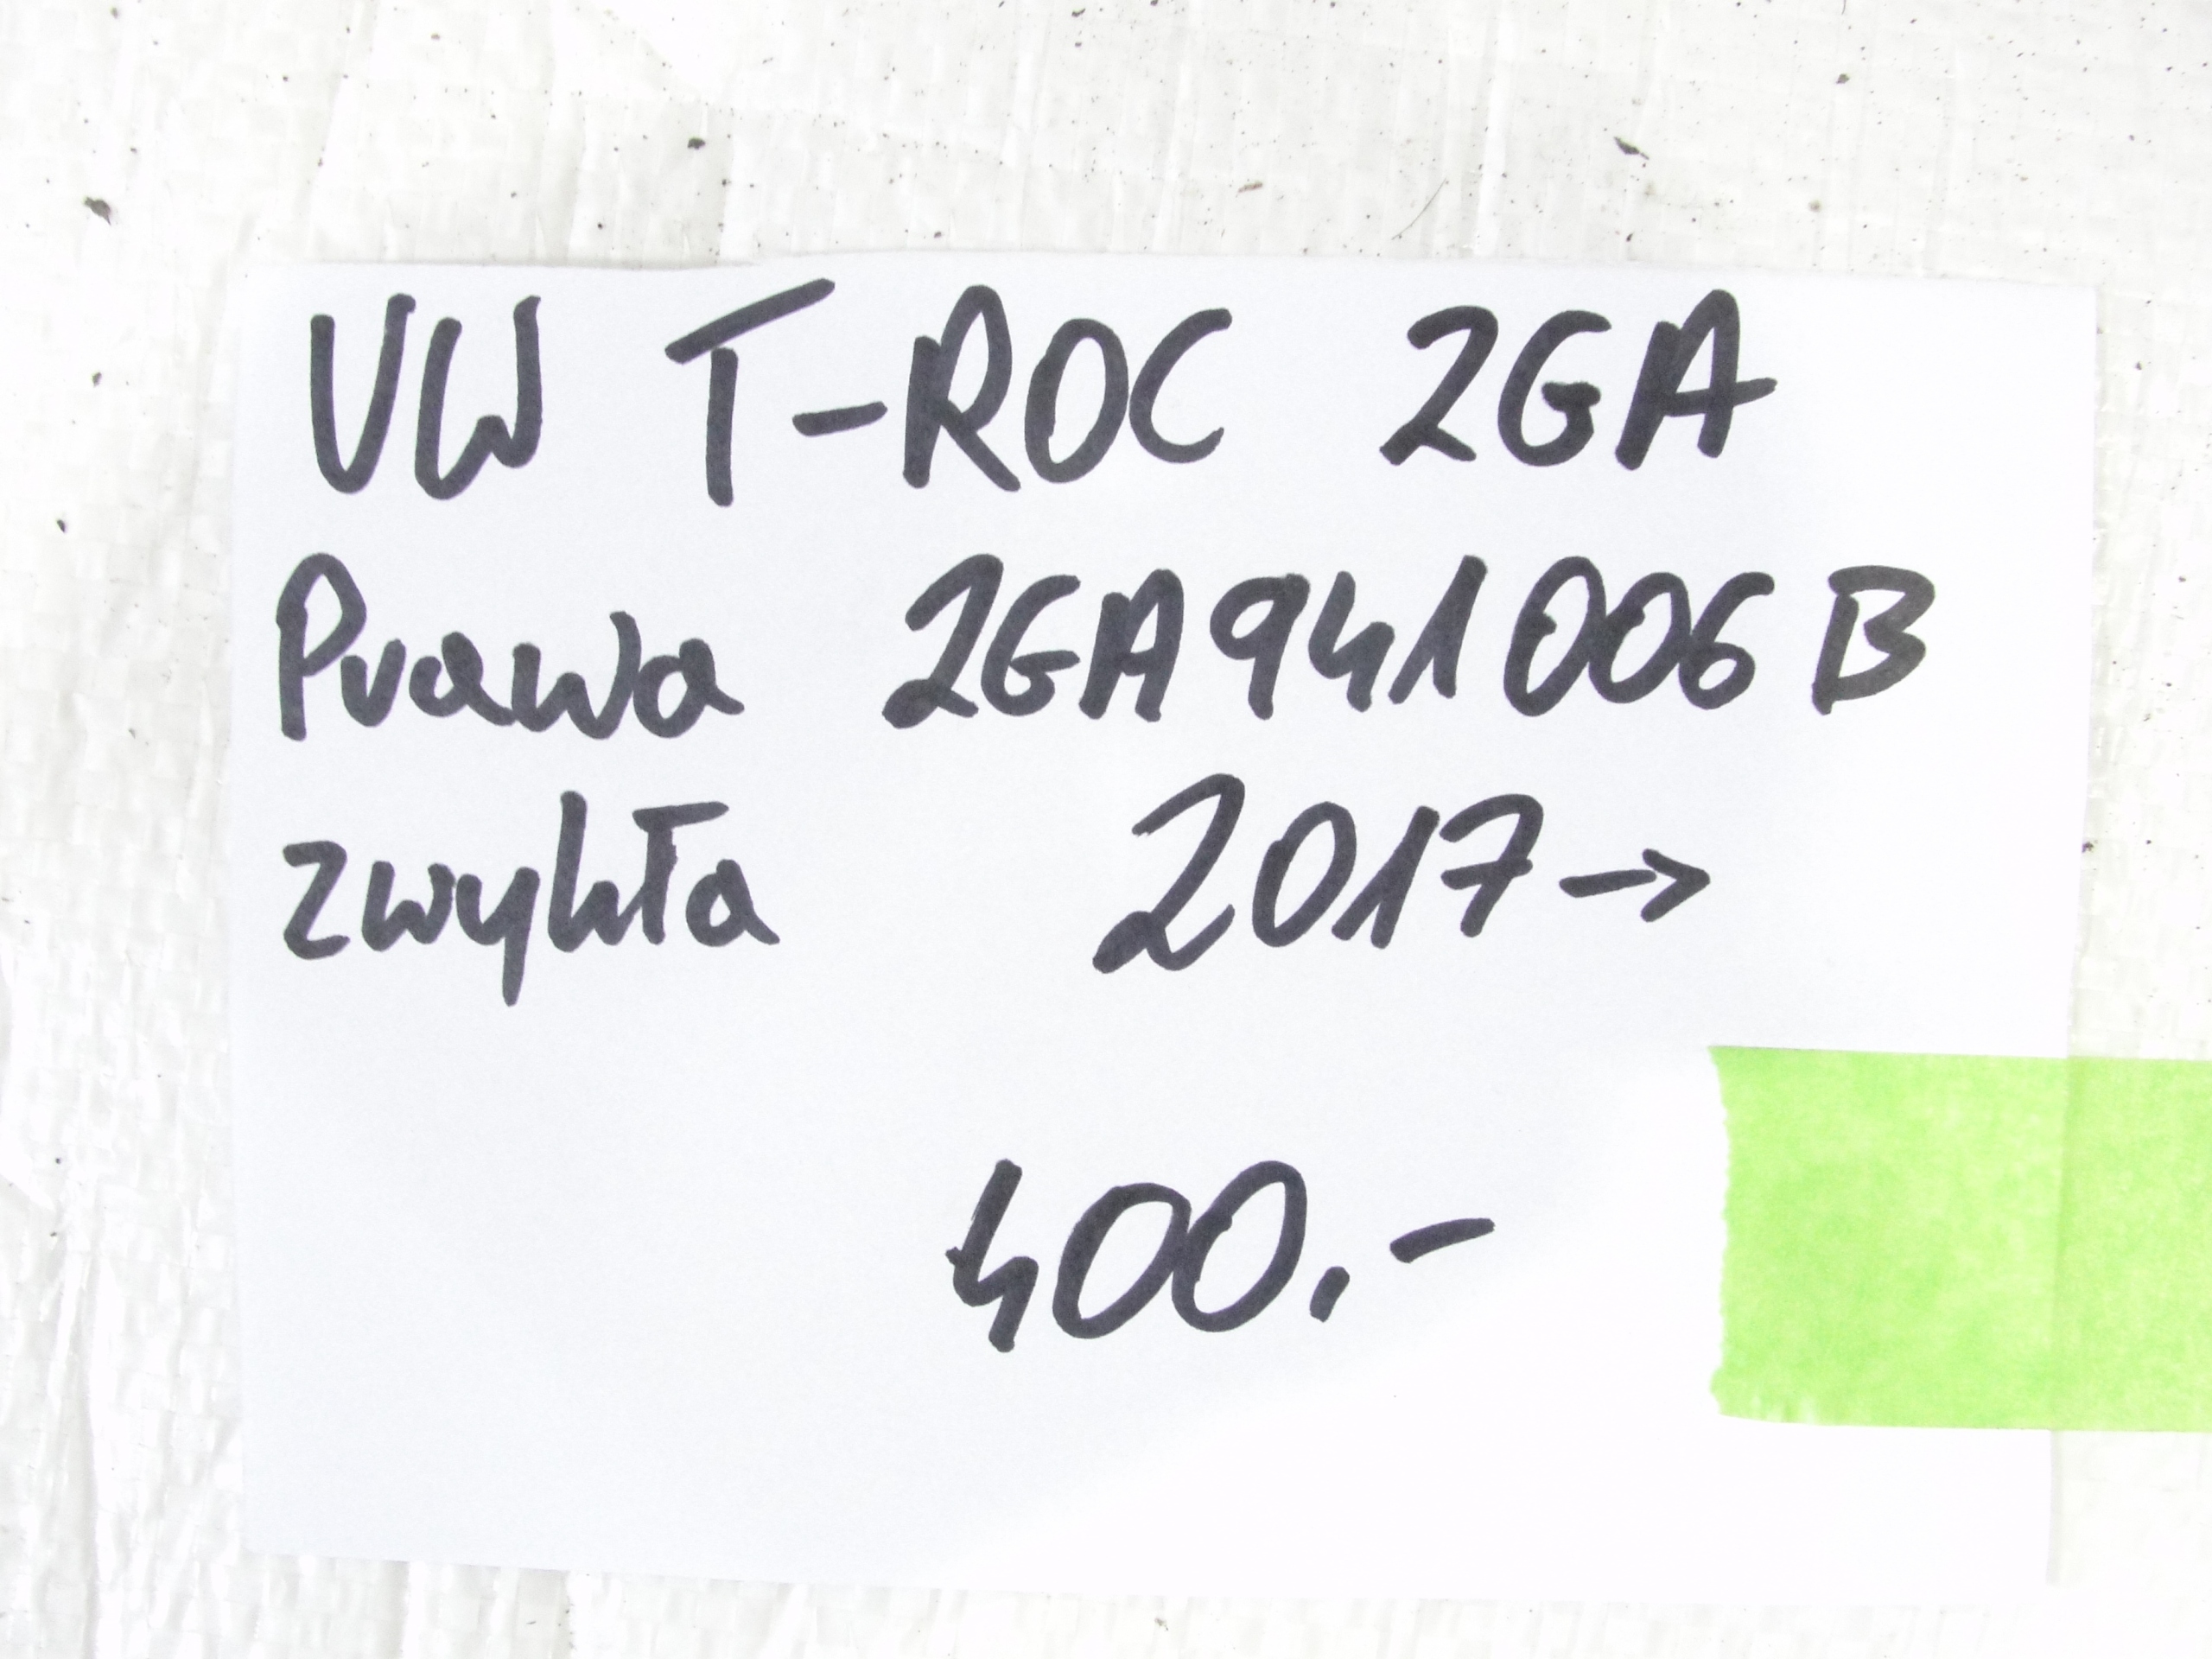 VW T-ROC 2GA
Prawa 2GA941006B
zwykła 2017→
400.-